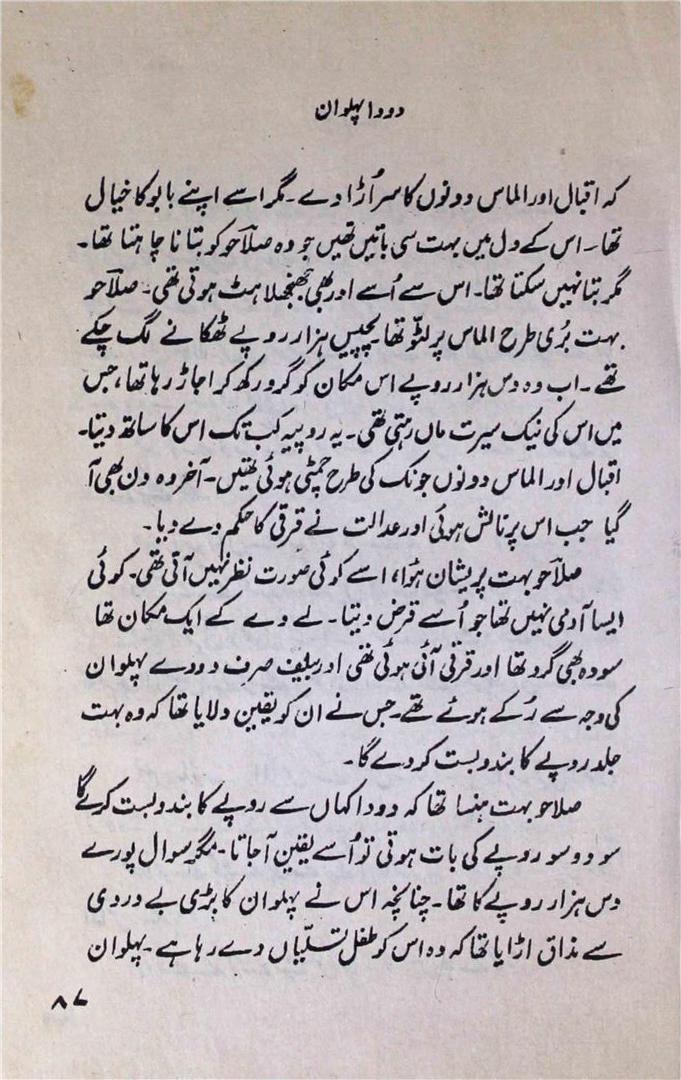 دودا پہلوان
کہ اقبال اور الماس دونوں کا سر اُڑا دے۔ مگر اسے اپنے بابو کا خیال
تھا۔ اس کے دل میں بہت سی باتیں تھیں جو وہ صلاحو کو بتانا چاہتا تھا۔
مگر بتا نہیں سکتا تھا۔ اس سے اُسے اور بھی جھنجھلاہٹ ہوتی تھی۔ صلاحو
بہت بُری طرح الماس پر لٹّو تھا۔ پچیس ہزار روپے ٹھکانے لگ چکے
تھے۔ اب وہ دس ہزار روپے اس مکان کو گرو رکھ کر اجاڑ رہا تھا، جس
میں اس کی نیک سیرت ماں رہتی تھی۔ یہ روپیہ کب تک اس کا ساتھ دیتا۔
اقبال اور الماس دونوں جونک کی طرح چمٹی ہوئی تھیں۔ آخر وہ دن بھی آ
گیا جب اس پر نالش ہوئی اور عدالت نے قرقی کا حکم دے دیا۔
صلاحو بہت پریشان ہوا، اسے کوئی صورت نظر نہیں آتی تھی۔ کوئی
ایسا آدمی نہیں تھا جو اُسے قرض دیتا۔ لے دے کے ایک مکان تھا
سو وہ بھی گرو تھا اور قرقی آئی ہوئی تھی اور بیلیف صرف دودے پہلوان
کی وجہ سے رُکے ہوئے تھے۔ جس نے ان کو یقین دلایا تھا کہ وہ بہت
جلد روپے کا بندوبست کر دے گا۔
صلاحو بہت ہنسا تھا کہ دودا کہاں سے روپے کا بندوبست کرے گا
سو دو سو روپے کی بات ہوتی تو اُسے یقین آ جاتا۔ مگر سوال پورے
دس ہزار روپے کا تھا۔ چنانچہ اس نے پہلوان کا بڑی بے دردی
سے مذاق اڑایا تھا کہ وہ اس کو طفل تسلّیاں دے رہا ہے۔ پہلوان
۸۷